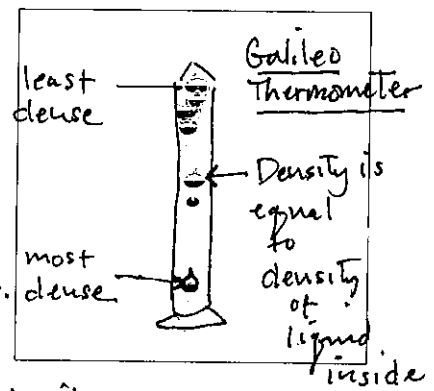 Galileo
Thermometer
least
dense
Density is
equal
to
density
of
liquid
inside
most
dense